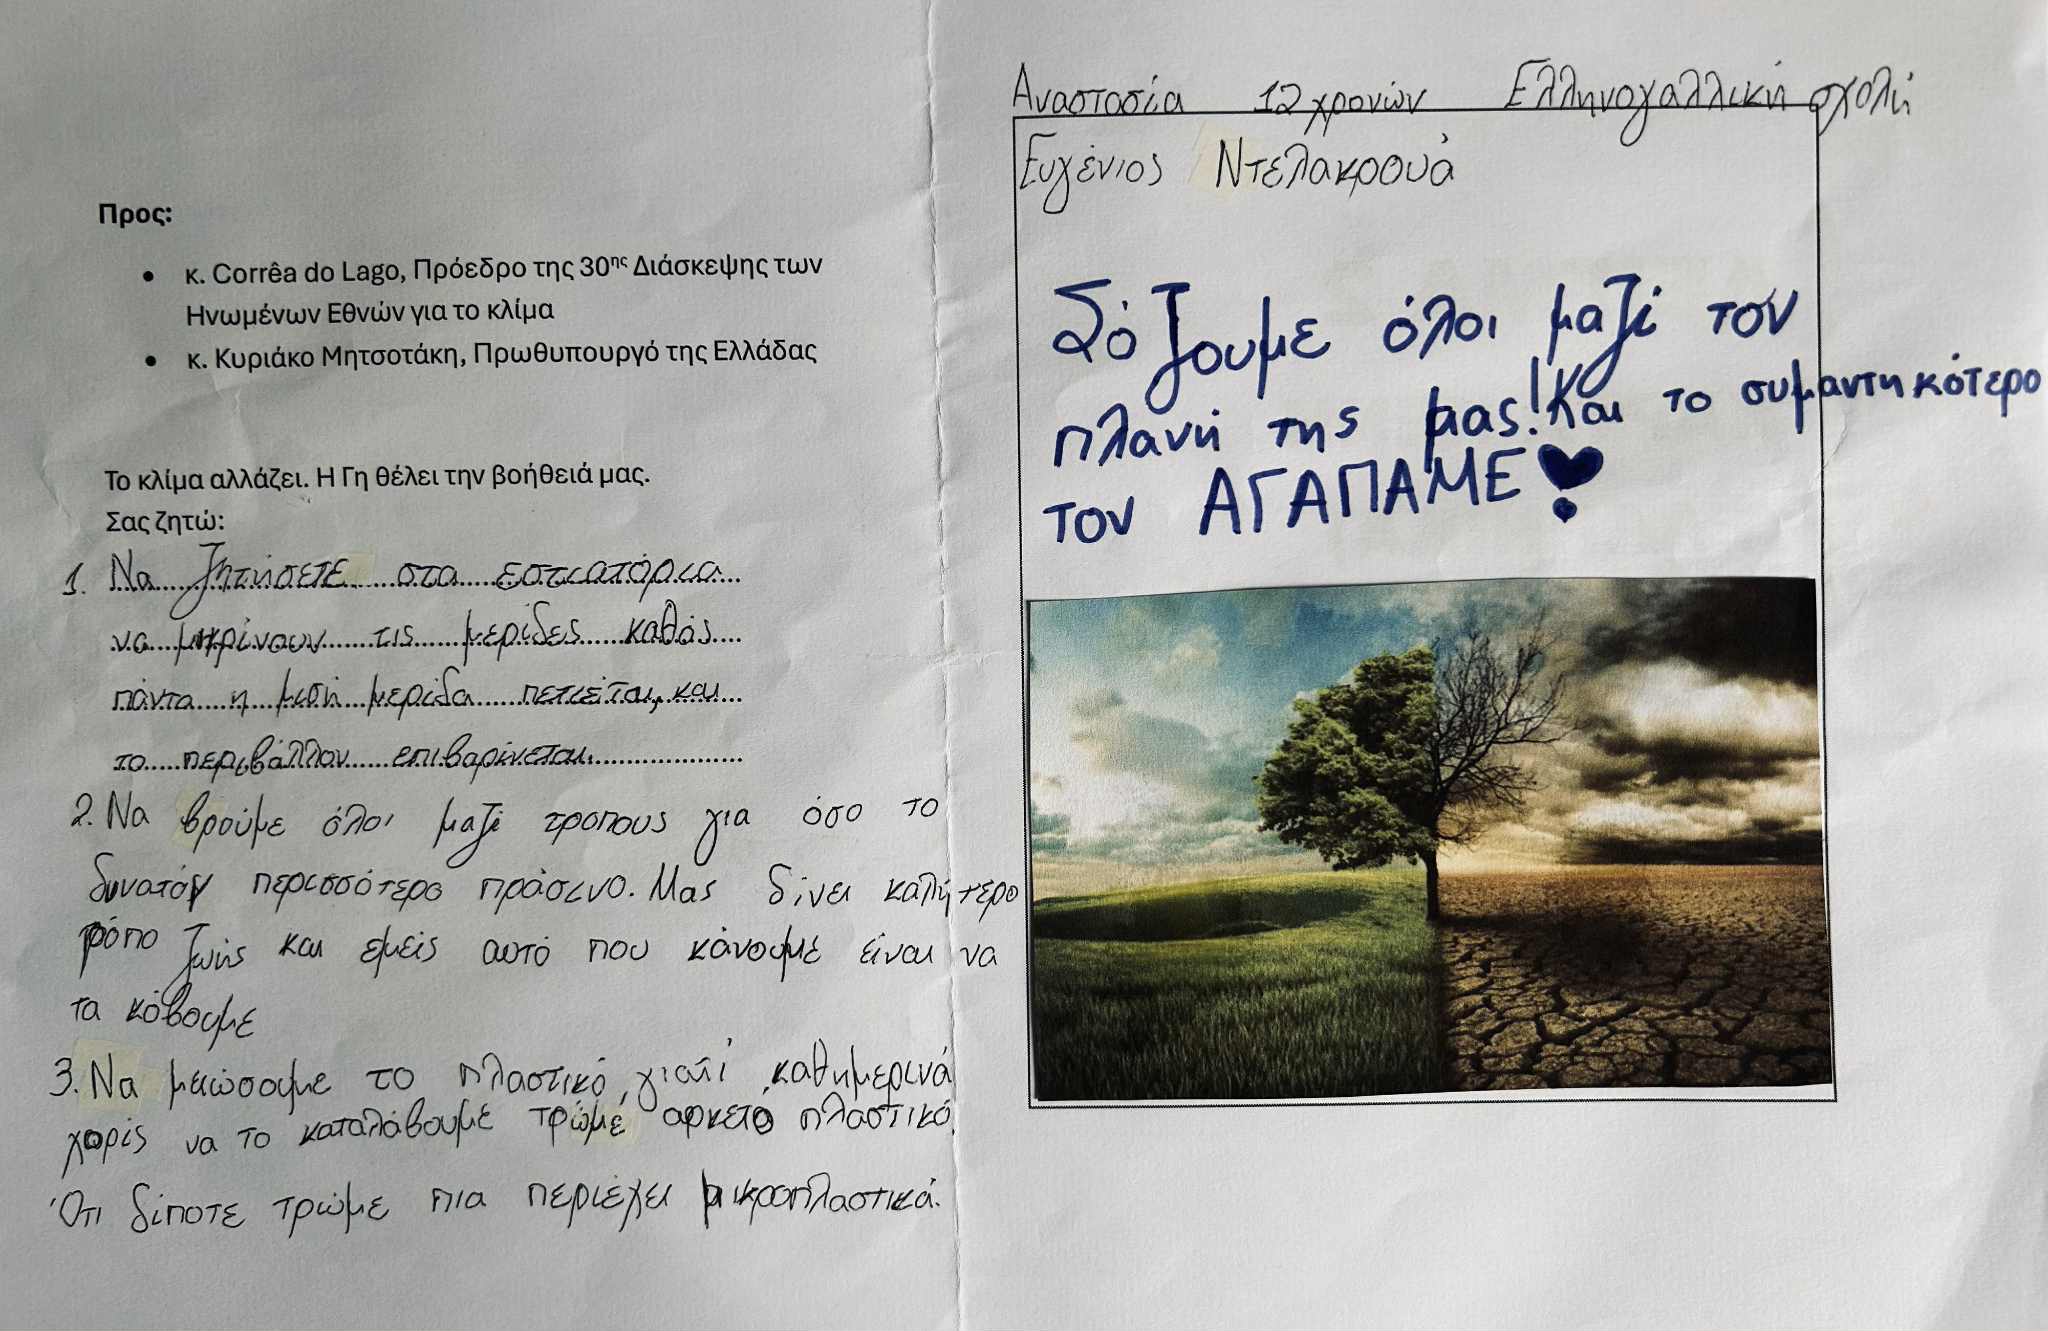 Προς:
• κ. Corrêa do Lago, Πρόεδρο της 30ης Διάσκεψης των
Ηνωμένων Εθνών για το κλίμα
• κ. Κυριάκο Μητσοτάκη, Πρωθυπουργό της Ελλάδας
Το κλίμα αλλάζει. Η Γη θέλει την βοήθειά μας.
Σας ζητώ:
1. Να ζητήσετε στα εστιατόρια
να μικρίνουν τις μερίδες καθός
πάντα η μισή μερίδα πετιέται, και
το περιβάλλον επιβαρίνεται.
2. Να βρούμε όλοι μαζί τροπους για όσο το
δυνατόν περισσότερο πράσινο. Μας δίνει καλήτερο
τρόπο ζωής και εμείς αυτό που κάνουμε είναι να
τα κόβουμε
3. Να μειώσουμε το πλαστικό, γιατί καθημερινά
χορίς να το καταλάβουμε τρώμε αρκετό πλαστικό.
Ότι δίποτε τρώμε πια περιέχει μικροπλαστικά.
Αναστασία 12 χρονών Ελληνογαλλική σχολή
Ευγένιος Ντελακρουά
Σόζουμε όλοι μαζί τον
πλανή της μας! Και το συμαντηκότερο
τον ΑΓΑΠΑΜΕ